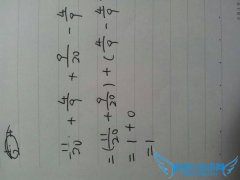 11/20 + 4/9 + 9/20 - 4/9
= (11/20 + 9/20) + (4/9 - 4/9)
= 1 + 0
= 1